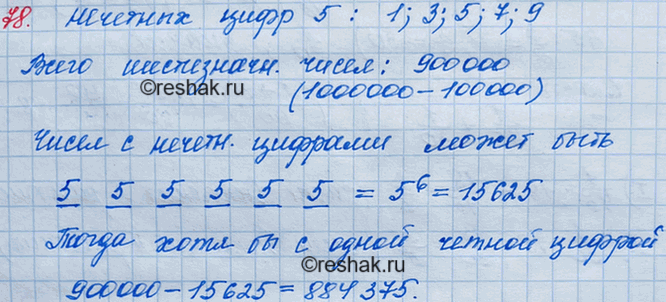 78. Нечетных цифр 5 : 1; 3; 5; 7; 9
Всего шестизначн. чисел: 900000
©reshak.ru
(1000000-100000)
Чисел с нечетн. цифрами может быть
5 5 5 5 5 5 = 5⁶ = 15625
Тогда хотя бы с одной четной цифрой
©reshak.ru
900000-15625=884375.